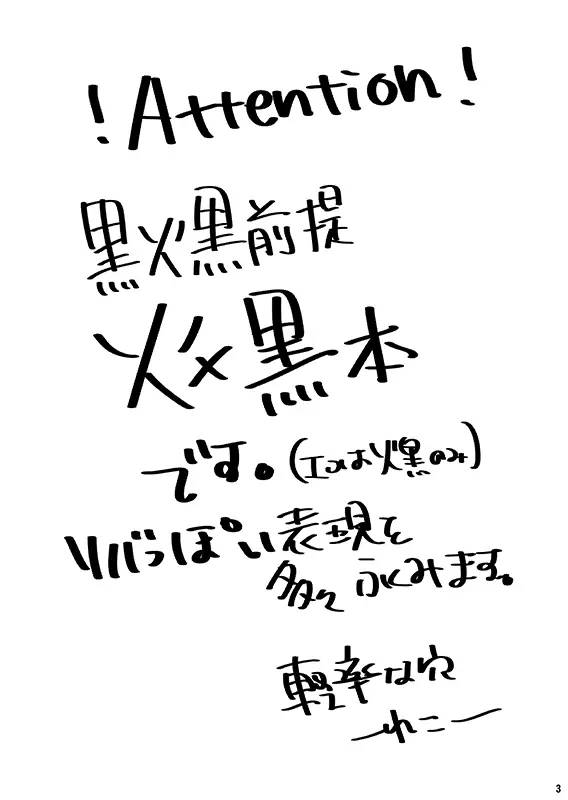 !Attention!
黒火黒前提
火×黒本
です。(エロは火黒のみ)
リバっぽい表現を
多々ふくみます。
軽率な穴
ーれこー
3